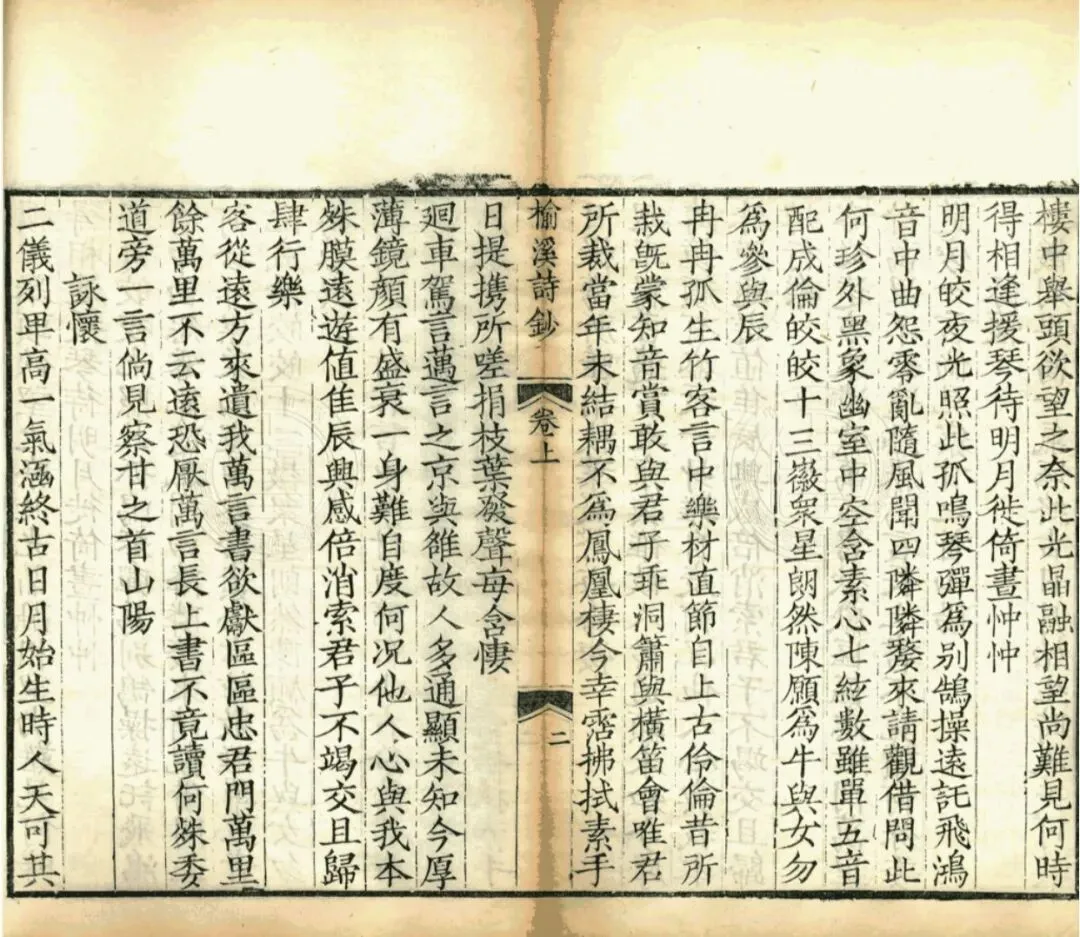 樓中舉頭欲望之奈此光晶融相望尚難見何時
得相逢援琴待明月徙倚晝忡忡
明月皎夜光照此孤鳴琴彈爲别鵠操遠託飛鴻
音中曲怨零亂隨風聞四隣隣發來請觀借問此
何珍外黑象幽室中空含素心七絃數雖單五音
配成倫皎皎十三徽衆星朗然陳願爲牛與女勿
爲參與辰
冉冉孤生竹客言中樂材直節自上古伶倫昔所
栽旣蒙知音賞敢與君子乖洞簫與橫笛會唯君
所裁當年未結耦不爲鳳凰棲今幸霑拂拭素手
榆溪詩鈔
卷上
二
日提携所嗟捐枝葉發聲每含悽
廻車駕言邁言之京與雒故人多通顯未知今厚
薄鏡顏有盛衰一身難自度何况他人心與我本
殊膜遠遊值佳辰興感倍消索君子不竭交且歸
肆行樂
客從遠方來遺我萬言書欲獻區區忠君門萬里
餘萬里不云遠恐厭萬言長上書不竟讀何殊委
道旁一言倘見察甘之首山陽
詠懷
二儀列甲高一氣涵終古日月始生時人天可其